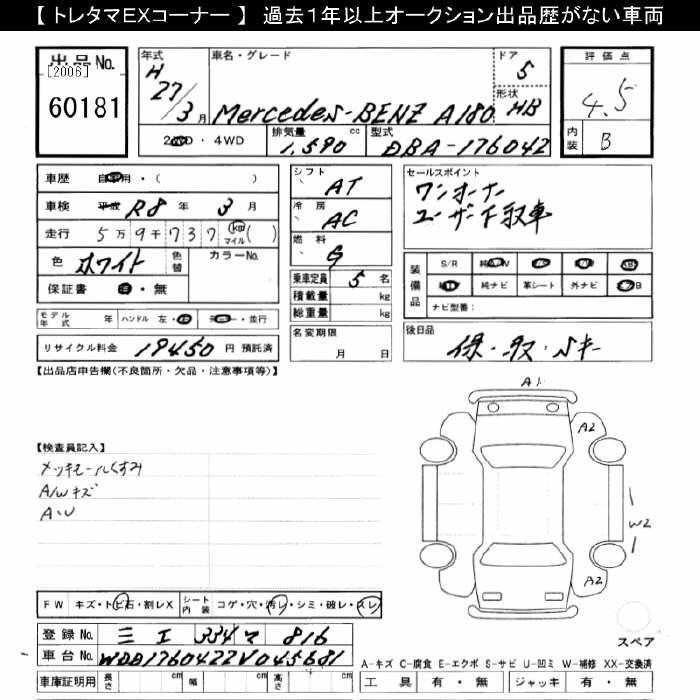 【 トレタマEXコーナー 】 過去1年以上オークション出品歴がない車両
出品No.
[2006]
60181
年式
H
27/3月
車名・グレード
Mercedes-BENZ A180
ドア
5
形状
HB
評価点
4.5
内装
B
2WD・4WD
排気量
1,590 cc
型式
DBA-176042
車歴 自家用・( )
車検 平成 R8 年 3 月
走行 5万9千737 km マイル ( )
色 ホワイト 色替 カラーNo.
保証書 有・無
モデル年式 年 ハンドル 左・右
並行
リサイクル料金 19450 円 預託済
シフト
AT
冷房
AC
燃料
G
乗車定員 5 名
積載量 kg
総重量 kg
名変期限
月 日
セールスポイント
ワンオーナー
ユーザー下取車
装備品
S/R 純A/W
純ナビ 革シート 外ナビ
ナビ型番:
後日品
保・取・Sキー
【出品店申告欄(不良箇所・欠品・注意事項等)】
【検査員記入】
メッキモールくすみ
A/Wキズ
A・U
A1
A2
W2
A2
スペア
FW キズ・トビ石・割レX シート内装 コゲ・穴・汚レ・シミ・破レ・スレ
登録No. 三エ 334 マ 816
車台No. WDD1760422V045681
車庫証明用 長さ cm 幅 cm 高さ cm
A-キズ C-腐食 E-エクボ S-サビ U-凹ミ W-補修 XX-交換済
工具 有・無 ジャッキ 有・無